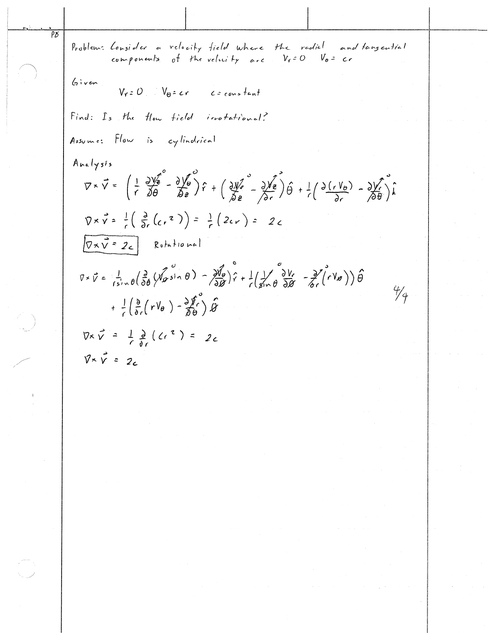 PB
Problem: Consider a velocity field where the radial and tangential
components of the velocity are Vr=0 Vθ=cr
Given
Vr=0 Vθ=cr c=constant
Find: Is the flow field irrotational?
Assume: Flow is cylindrical
Analysis
∇×V⃗ = (1/r ∂Vz/∂θ - ∂Vθ/∂z) r̂ + (∂Vr/∂z - ∂Vz/∂r) θ̂ + 1/r (∂(rVθ)/∂r - ∂Vr/∂θ) k̂
∇×V⃗ = 1/r (∂/∂r (cr²)) = 1/r (2cr) = 2c
∇×V⃗ = 2c Rotational
∇×V⃗ = 1/(r sin θ) (∂/∂θ (Vø sin θ) - ∂Vθ/∂ø) r̂ + 1/r (1/sin θ ∂Vr/∂ø - ∂/∂r (rVø)) θ̂
+ 1/r (∂/∂r (rVθ) - ∂Vr/∂θ) ø̂
4/4
∇×V⃗ = 1/r ∂/∂r (cr²) = 2c
∇×V⃗ = 2c